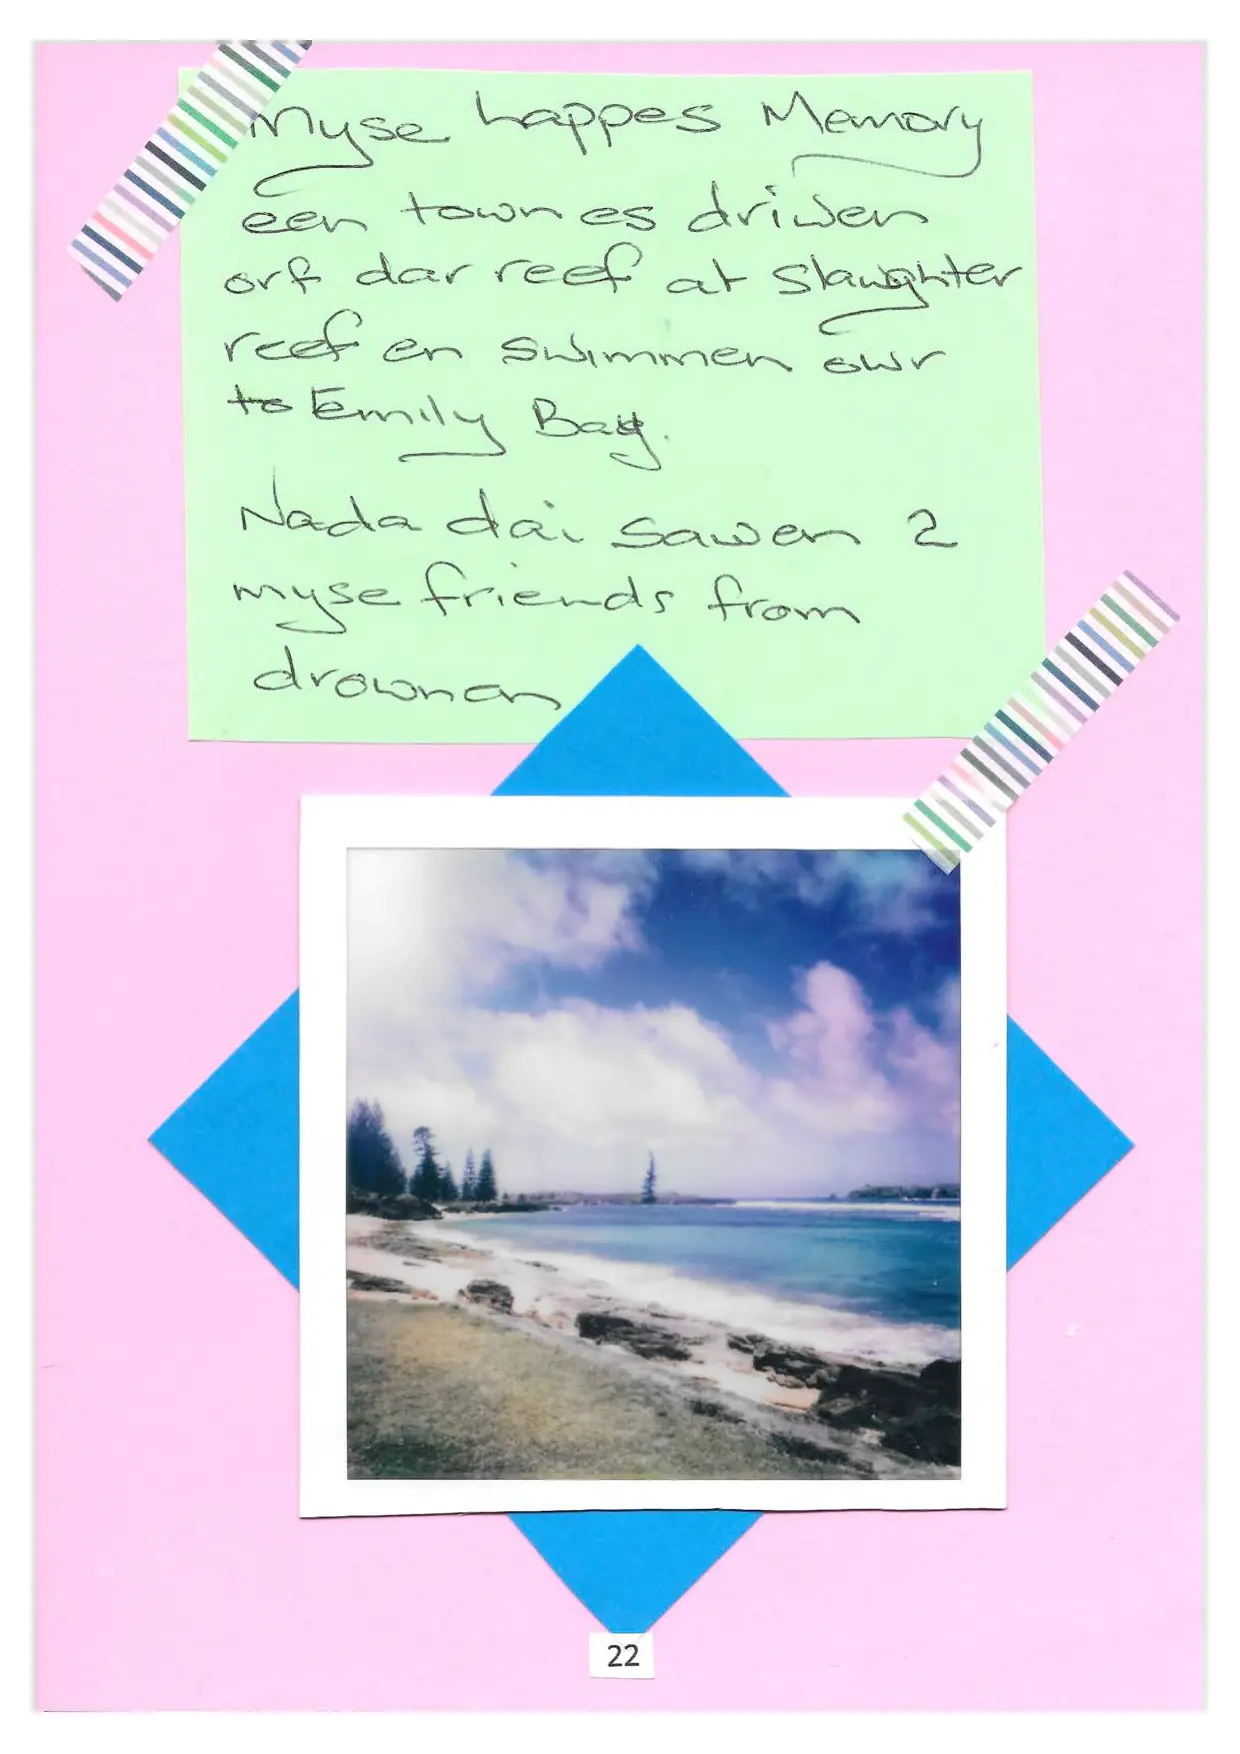 myse happes Memory
een town es driwen
orf dar reef at Slaughter
reef en swimmen owr
to Emily Bay.
Nada dai sawen 2
myse friends from
drownen
22